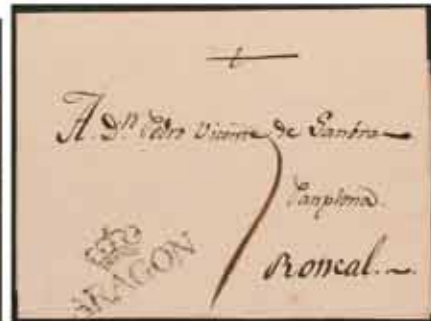 A Dn Pedro Vicente de Gambra
Panplona.
Roncal.
ARAGON